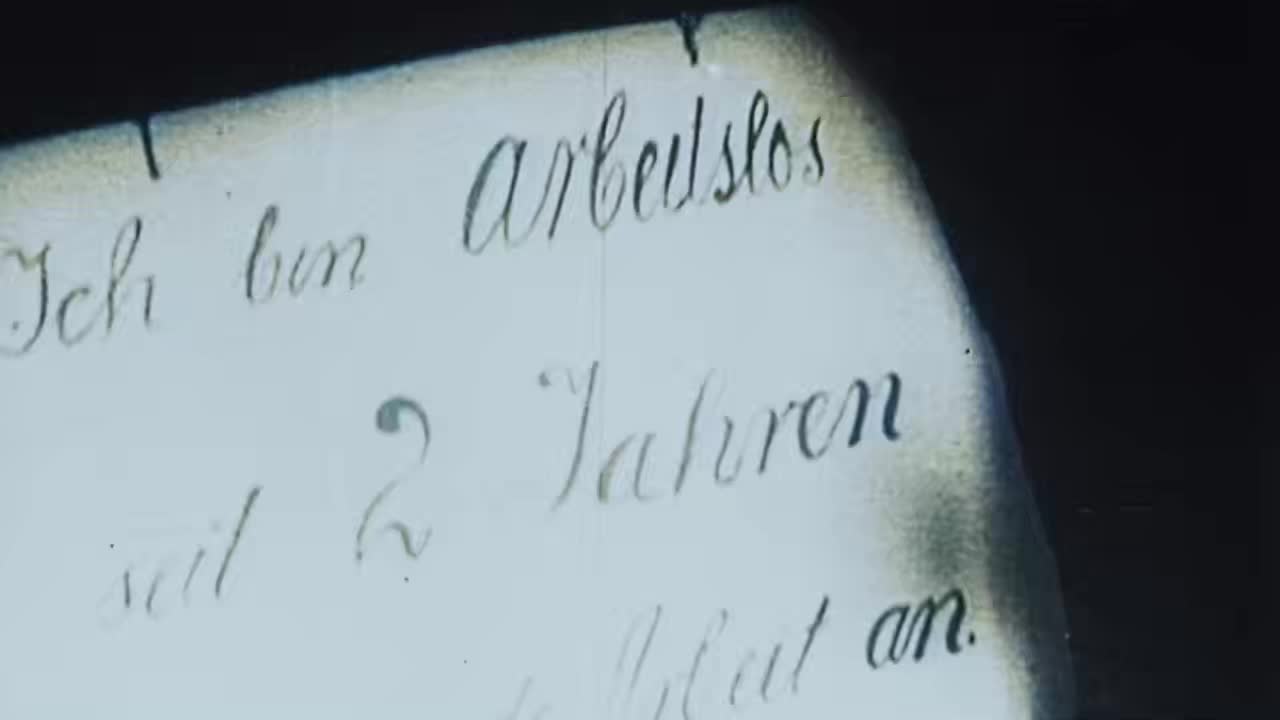 Ich bin Arbeitslos
seit 2 Jahren
Arbeit an.